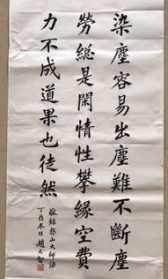 染塵容易出塵難不斷塵
勞総是閑情性攀緣空費
力不成道果也徒然
敬錄憨山大師語
丁酉冬日趙